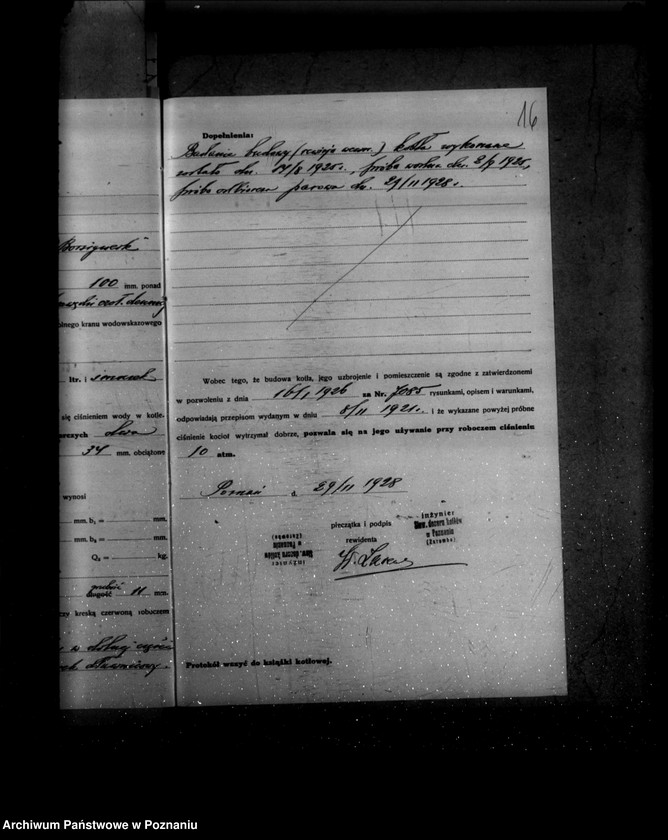 16
Dopełnienia:
Badanie budowy (rewizja wewn.) kotła wykonane
zostało dn. 14/8 1925 r., próba wodna dn. 2/9 1925,
próba odbiorcza parowa dn. 29/11 1928 r.
Borsigwerk
100 mm. ponad
olnego kranu wodowskazowego
ltr. i
się ciśnieniem wody w kotle.
dwa
34 mm. obciążone
wynosi
mm. b₁ = mm.
mm. b₂ = mm.
Q₂ = kg.
długość 11 mm.
czy kreską czerwoną roboczem
Wobec tego, że budowa kotła, jego uzbrojenie i pomieszczenie są zgodne z zatwierdzonemi
w pozwoleniu z dnia 16/1 1926 za Nr. 7085 rysunkami, opisem i warunkami,
odpowiadają przepisom wydanym w dniu 8/11 1921 r. i że wykazane powyżej próbne
ciśnienie kocioł wytrzymał dobrze, pozwala się na jego używanie przy roboczem ciśnieniu
10 atm.
Poznań d. 29/11 1928
pieczątka i podpis
rewidenta
inżynier
Stow. dozoru kotłów
w Poznaniu
inżynier
Stow. dozoru kotłów
w Poznaniu
Protokół wszyć do książki kotłowej.
Archiwum Państwowe w Poznaniu